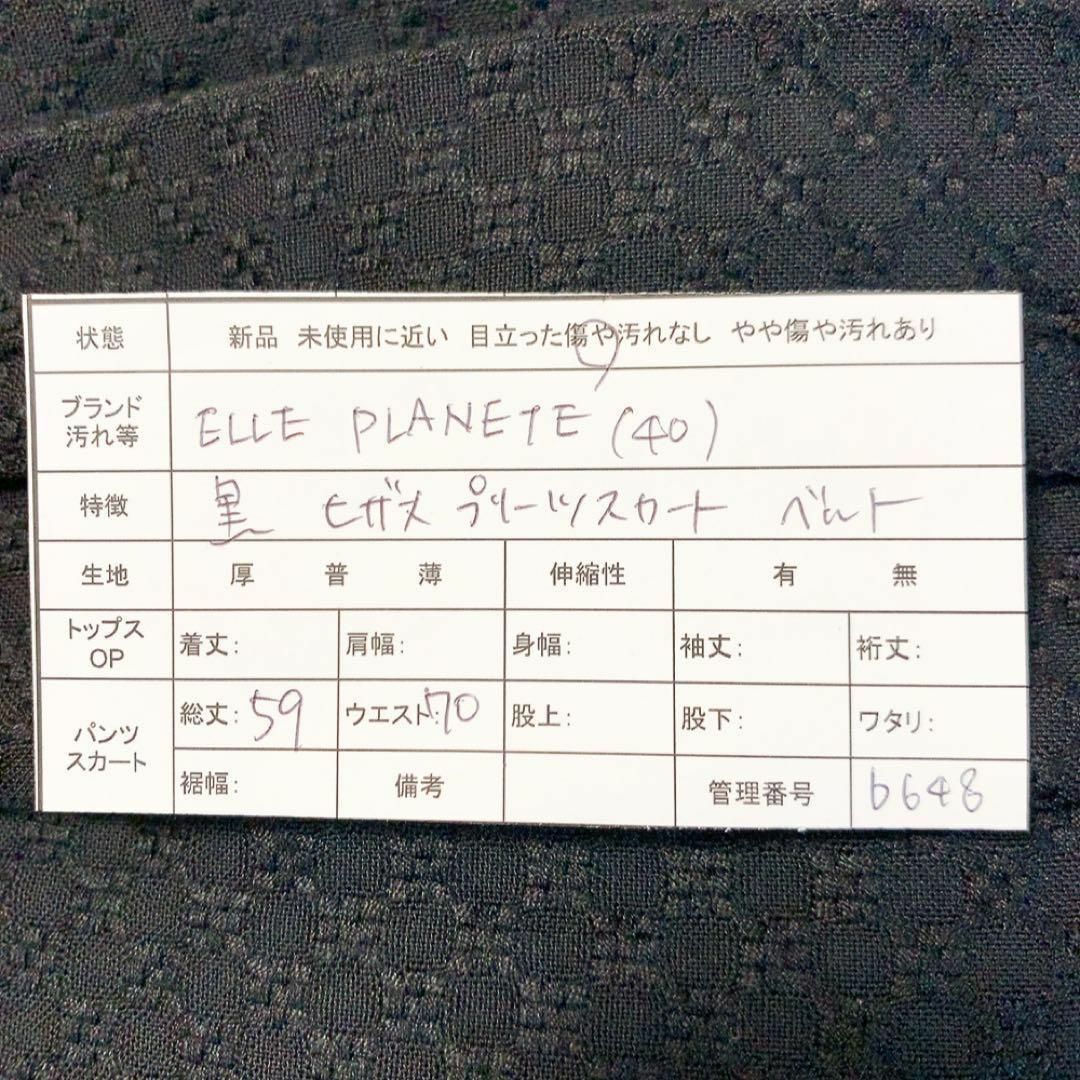 状態 新品 未使用に近い 目立った傷や汚れなし やや傷や汚れあり
ブランド
汚れ等 ELLE PLANETE (40)
特徴 黒 ヒザ丈 プリーツスカート ベルト
生地 厚 普 薄 伸縮性 有 無
トップス
OP 着丈: 肩幅: 身幅: 袖丈: 裄丈:
パンツ
スカート 総丈: 59 ウエスト: 70 股上: 股下: ワタリ:
裾幅: 備考 管理番号 b648